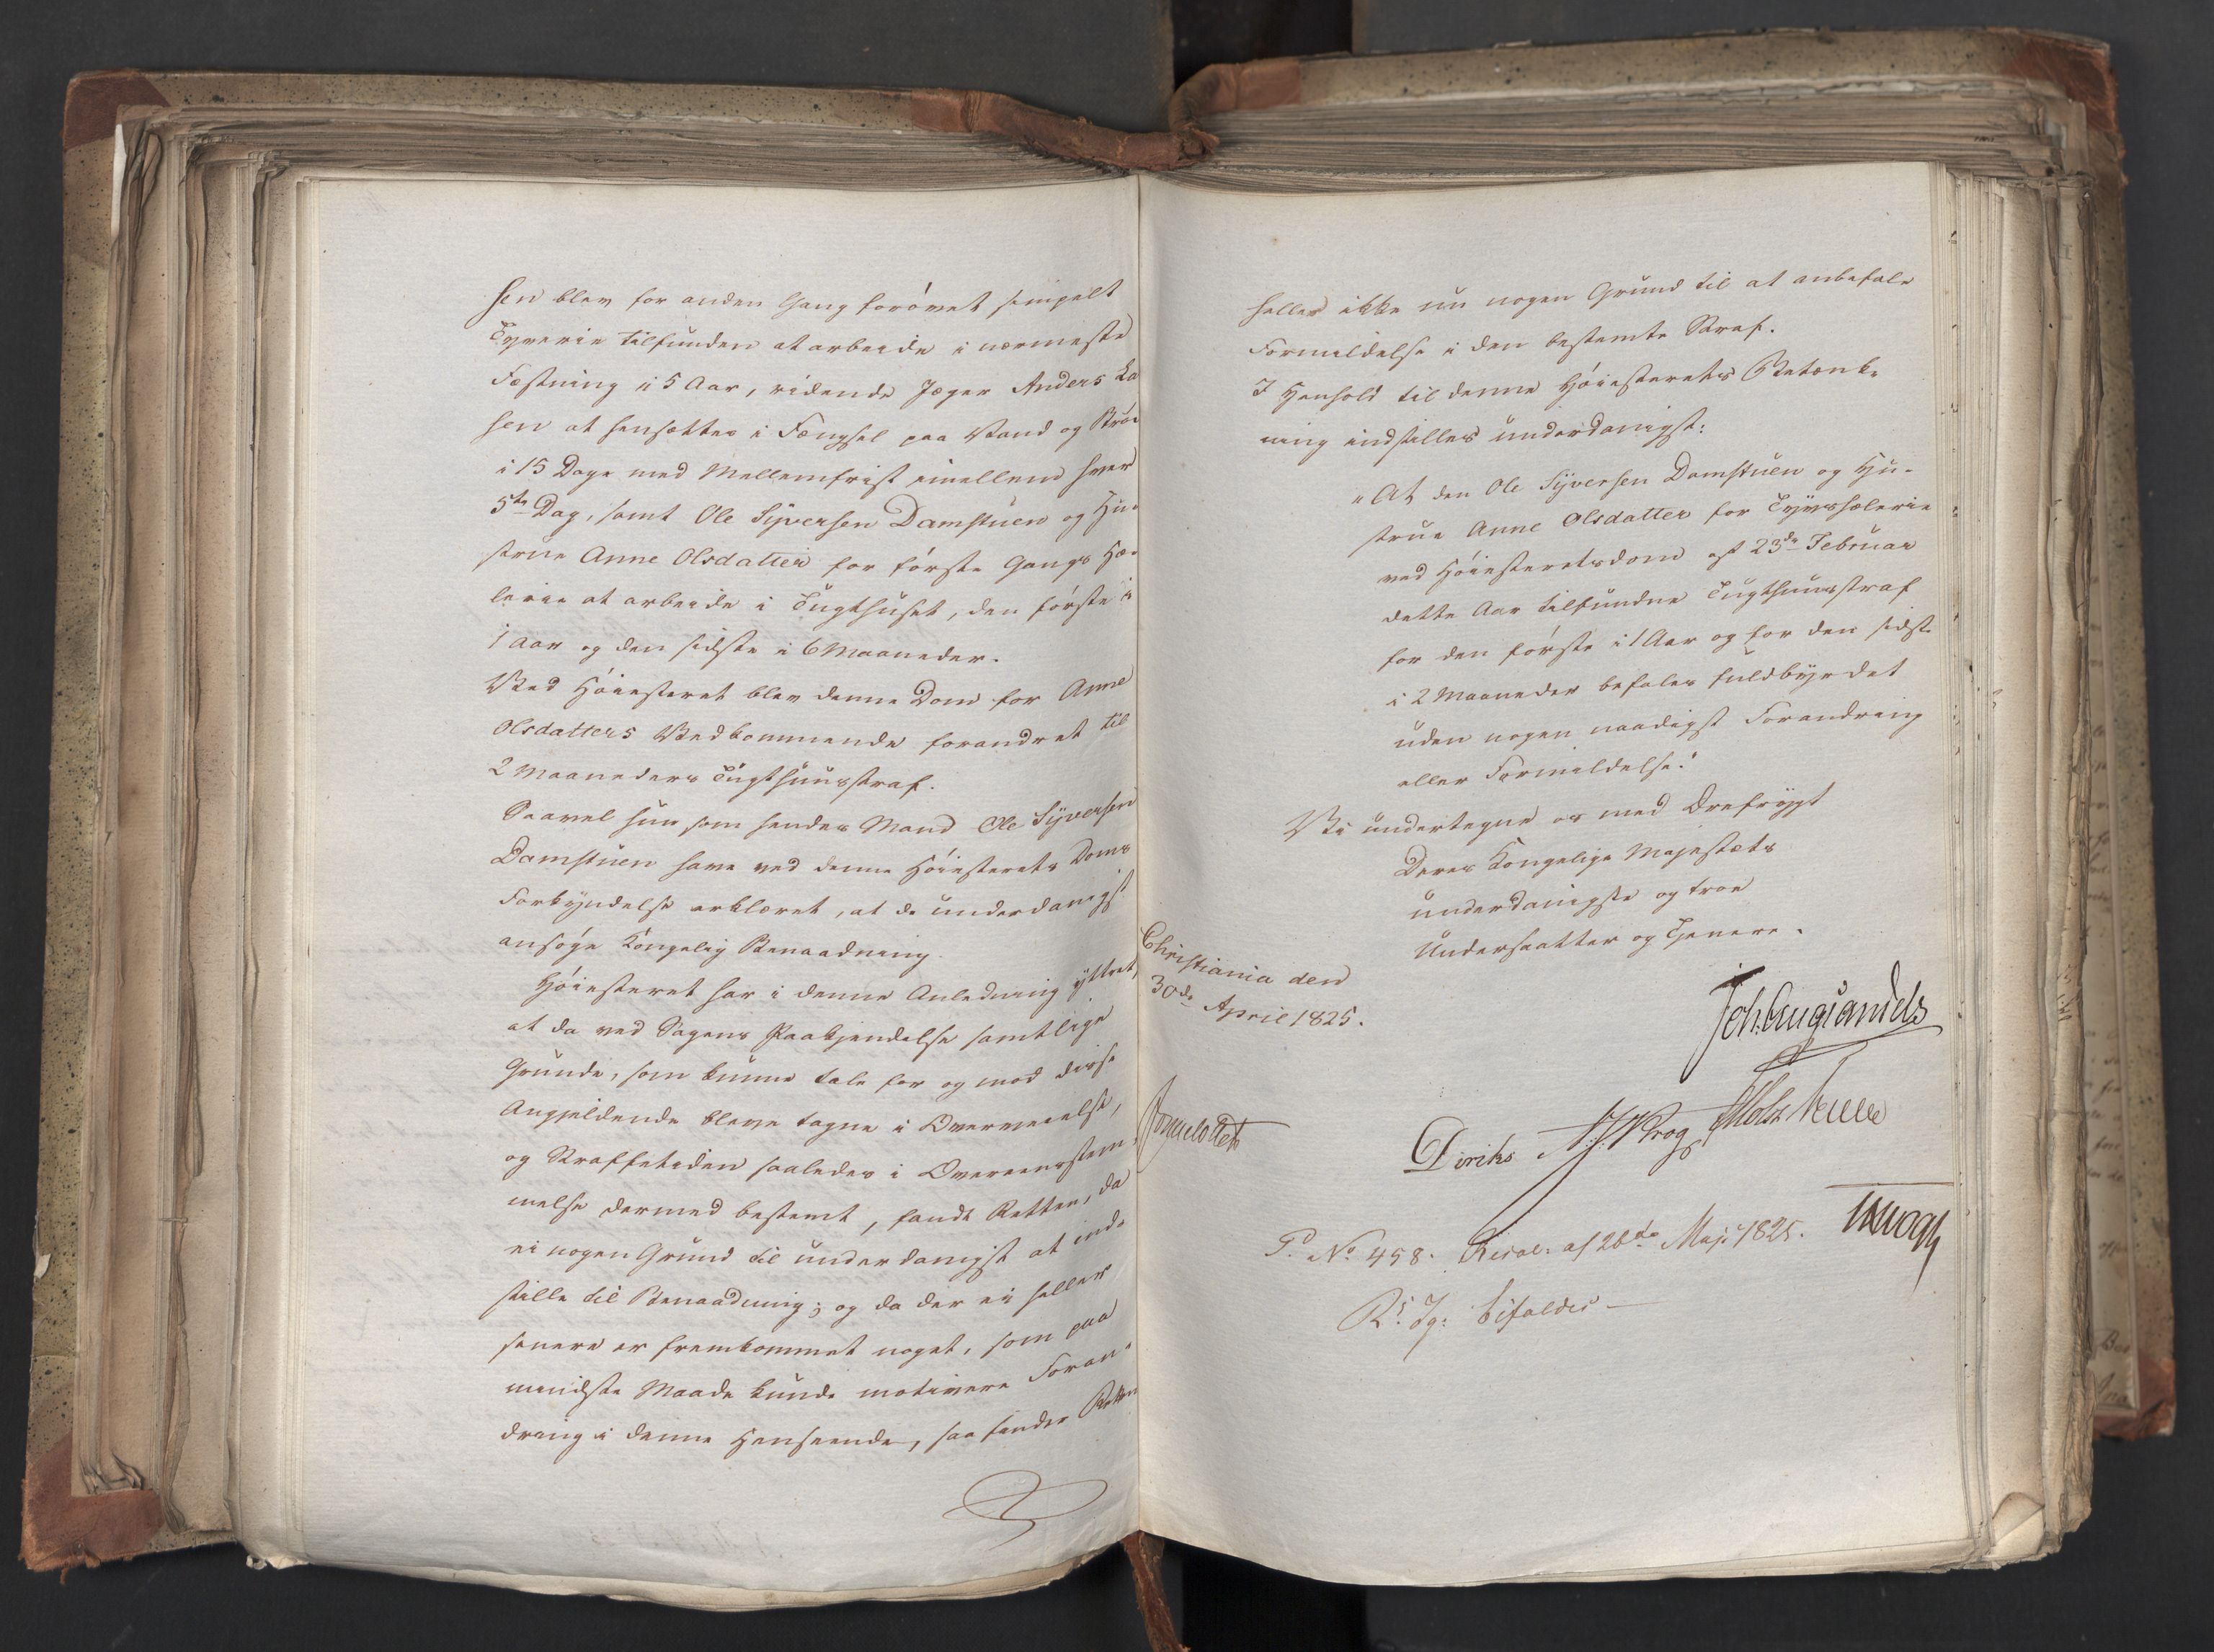 sen blev for anden Gang forövet simpelt
Tyverie tilfunden at arbeide i nærmeste
Fæstning i 5 Aar, ridende Jæger Anders La
sen at hensættes i Fængsel paa Vand og Brød
i 15 Dage med Mellemfrist imellem hver
5te Dag, samt Ole Syversen Damstuen og Hu-
strue Anne Olsdatter for förste Gangs Hæ-
lerie at arbeide i Tugthuset, den förste i
1 Aar og den sidste i 6 Maaneder.
Ved Höiesteret blev denne Dom for Anne
Olsdatters Vedkommende forandret til
2 Maaneders Tugthuusstraf.
Saavel hun som hendes Mand Ole Syversen
Damstuen have ved denne Höiesterets Doms
Forkyndelse erklæret, at de underdanigst
ansöge Kongelig Benaadning.
Höiesteret har i denne Anledning yttret,
at da ved Sagens Paakjendelse samtlige
Grunde, som kunne tale for og mod disse
Angjeldende bleve tagne i Overveielse,
og Straffetiden saaledes i Overeensstem-
melse dermed bestemt, fandt Retten, da
ei nogen Grund til underdanigst at ind-
stille til Benaadning; og da der ei heller
senere er fremkommet noget, som paa
mindste Maade kunde motivere Foran-
dring i denne Henseende, saa finder Retten
heller ikke nu nogen Grund til at anbefale
Formildelse i den bestemte Straf.
I Henhold til denne Höiesterets Betænk-
ning indstilles underdanigst:
"At den Ole Syversen Damstuen og Hu-
strue Anne Olsdatter for Tyvshælerie
ved Höiesteretsdom af 23de Februar
dette Aar tilfundne Tugthuusstraf
for den förste i 1 Aar og for den sidste
i 2 Maaneder befales fuldbyrdet
uden nogen naadigst Forandring
eller Formildelse."
Vi undertegne os med Ærefrygt
Deres Kongelige Majestæts
underdanigste og troe
Undersaatter og Tjenere.
Christiania den
30de April 1825.
Diriks Krog
Pd No 498. Resol: af 26de Maji 1825.
Rs Jg: bifaldes